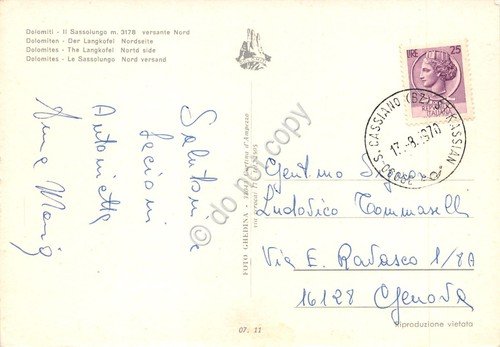 Dolomiti - Il Sassolungo m. 3178 versante Nord
Dolomiten - Der Langkofel Nordseite
Dolomites - The Langkofel Nortd side
Dolomites - Le Sassolungo Nord versand
LIRE 25
S. CASSIANO (BZ) ST. KASSIAN
13.-8.1970
39030
Saluti
e
Antonietta
FOTO GHEDINA - Cortina d'Ampezzo
Gentmo Signor
Ludovico Tommaselli
Via E. Ravasco 1/8A
16128 Genova
07. 11
Riproduzione vietata
do not copy